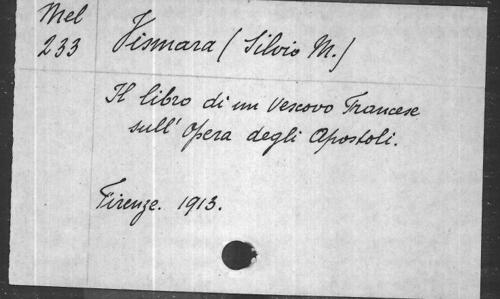 Mel
233
Vismara (Silvio M.)
Il libro di un Vescovo Francese
sull' Opera degli Apostoli.
Firenze. 1913.